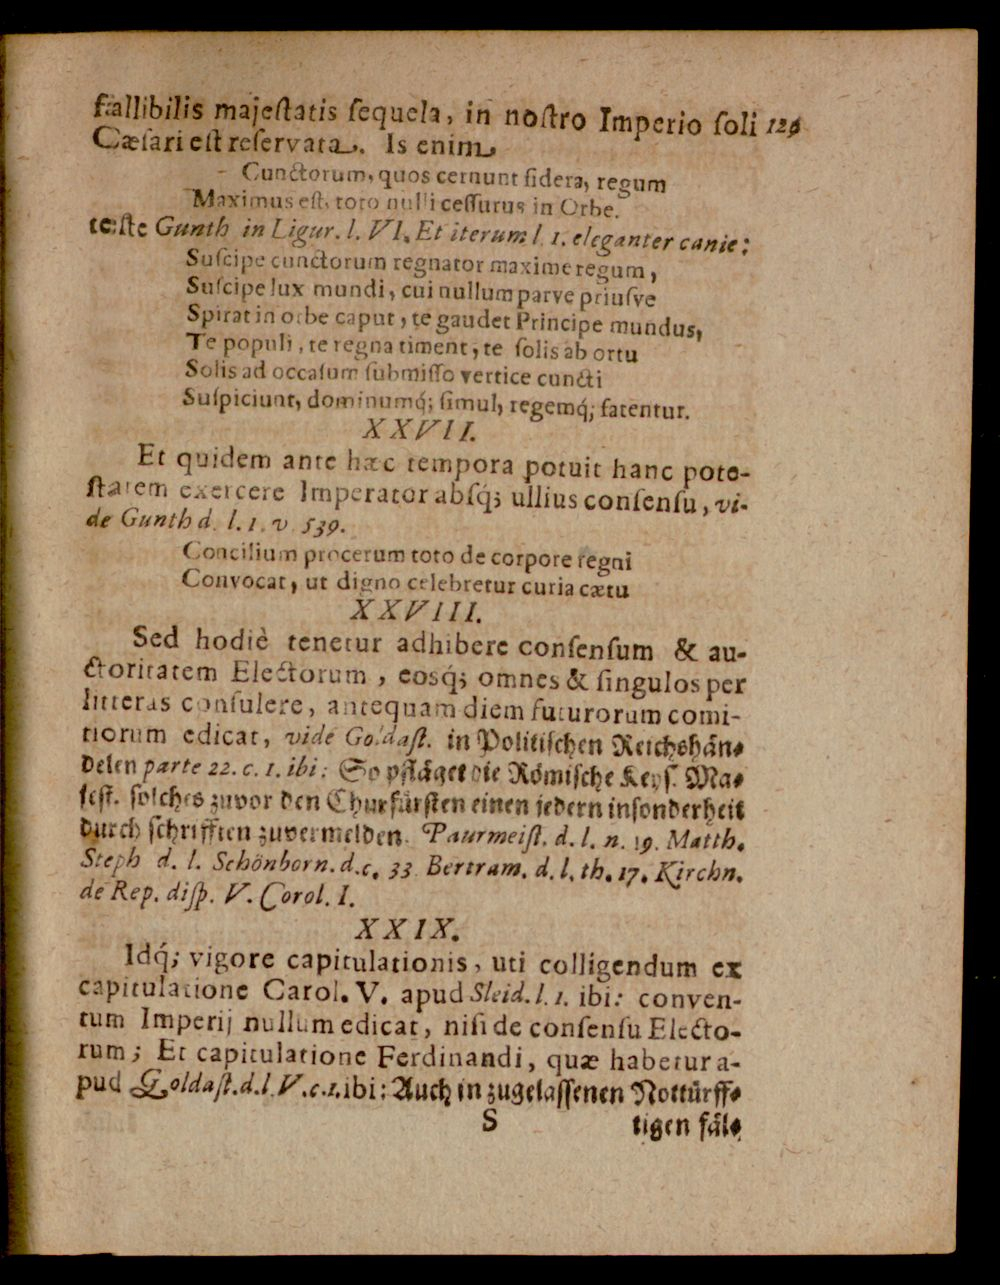 fallibilis majeſtatis ſequela, in noſtro Imperio ſoli 129
Cæſari eſt reſervata. Is enim
Cunctorum, quos cernunt ſidera, regum
Maximus eſt, toto nulli ceſſurus in Orbe.
teſte Gunth in Ligur. l. VI. Et iterum l. 1. eleganter canit:
Suſcipe cunctorum regnator maxime regum,
Suſcipe lux mundi, cui nullum parve priuſve
Spirat in orbe caput, te gaudet Principe mundus,
Te populi, te regna timent, te ſolis ab ortu
Solis ad occaſum ſubmiſſo vertice cuncti
Suſpiciunt, dominumq́; ſimul, regemq́; fatentur.
XXVII.
Et quidem ante hæc tempora potuit hanc pote-
ſtatem exercere Imperator abſq́; ullius conſenſu, vi-
de Gunth d. l. 1. v. 539.
Concilium procerum toto de corpore regni
Convocat, ut digno celebretur curia cætu
XXVIII.
Sed hodiè tenetur adhibere conſenſum & au-
ctoritatem Electorum, eosq́; omnes & ſingulos per
litteras conſulere, antequam diem futurorum comi-
tiorum edicat, vide Goldaſt. in Politiſchen Reichshän-
delen parte 22. c. 1. ibi: So pfläget die Römiſche Keyſ. Ma-
jeſt. ſolches zuvor den Churfürſten einen jedern inſonderheit
durch ſchrifften zuvermelden. Paurmeiſt. d. l. n. 19. Matth.
Steph d. l. Schönborn. d. c. 33 Bertram. d. l. th. 17. Kirchn.
de Rep. diſp. V. Corol. I.
XXIX.
Idq́; vigore capitulationis, uti colligendum ex
capitulatione Carol. V. apud Sleid. l. 1. ibi: conven-
tum Imperij nullum edicat, niſi de conſenſu Electo-
rum; Et capitulatione Ferdinandi, quæ habetur a-
pud Goldaſt. d. l. V. c. 1. ibi: Auch in zugelaſſenen Nottürff-
S tigen fäl-